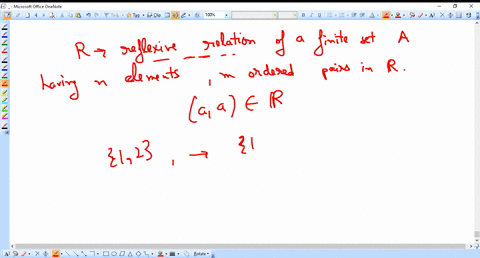 Microsoft Office OneNote
R → reflexive relation of a finite set A
having n elements , m ordered pairs in R.
(a, a) ∈ R
{1,2} , → {1